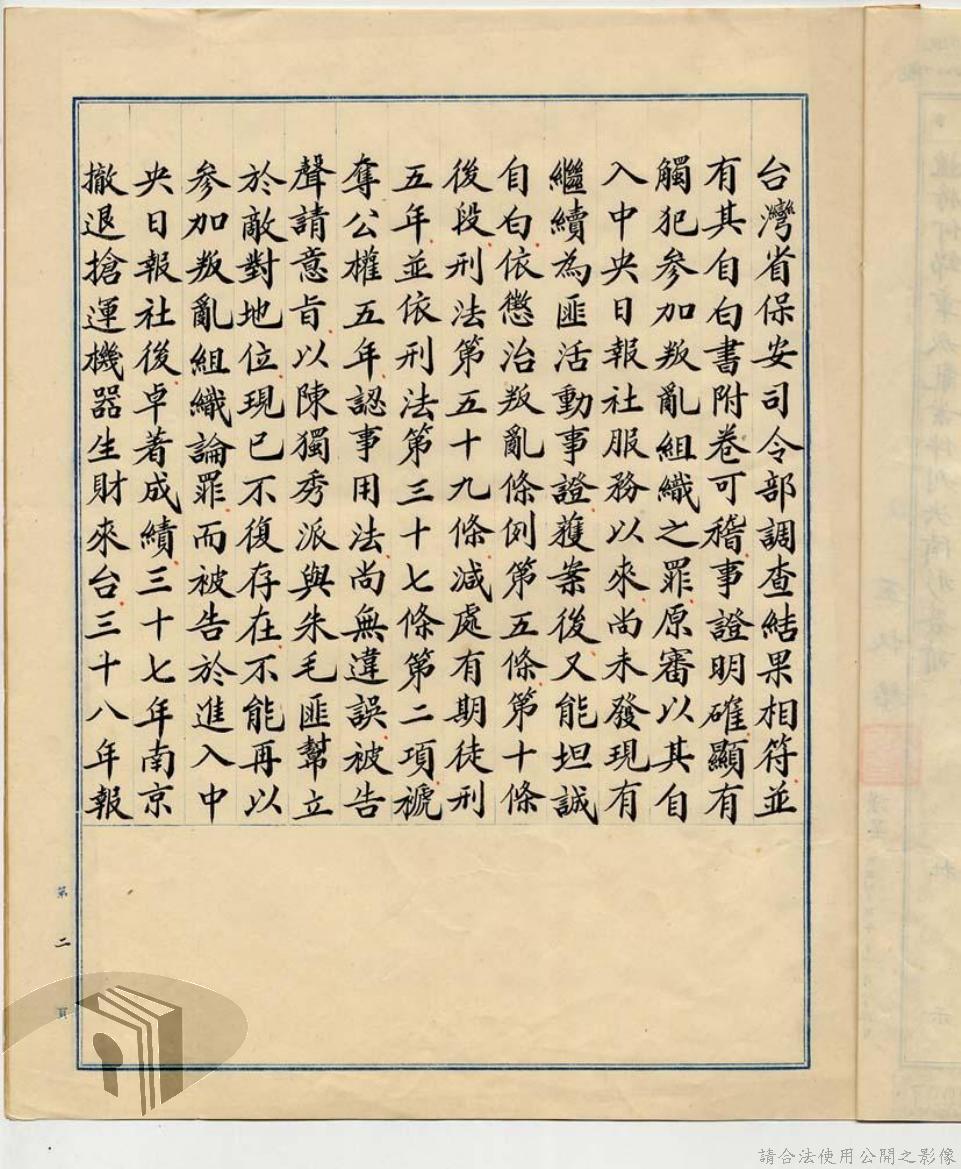 台灣省保安司令部調查結果相符並
有其自白書附卷可稽事證明確顯有
觸犯參加叛亂組織之罪原審以其自
入中央日報社服務以來尚未發現有
繼續為匪活動事證蒦案後又能坦誠
自白依懲治叛亂條例第五條第十條
後段刑法第五十九條減處有期徒刑
五年並依刑法第三十七條第二項褫
奪公權五年認事用法尚無違誤被告
聲請意旨以陳獨秀派與朱毛匪幫立
於敵對地位現已不復存在不能再以
參加叛亂組織論罪而被告於進入中
央日報社後卓著成績三十七年南京
撤退搶運機器生財來台三十八年報
第二頁
請合法使用公開之影像